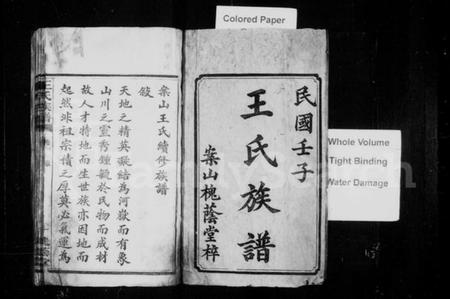 Colored Paper
民國壬子
王氏族譜
案山槐蔭堂梓
Whole Volume
Tight Binding
Water Damage
案山王氏續修族譜
敘
天地之精英凝結為河嶽而有象
山川之靈秀鍾毓於民物而成材
故人才特地而生世族亦因地而
起然非祖宗積之厚莫必氣運為
王氏族譜